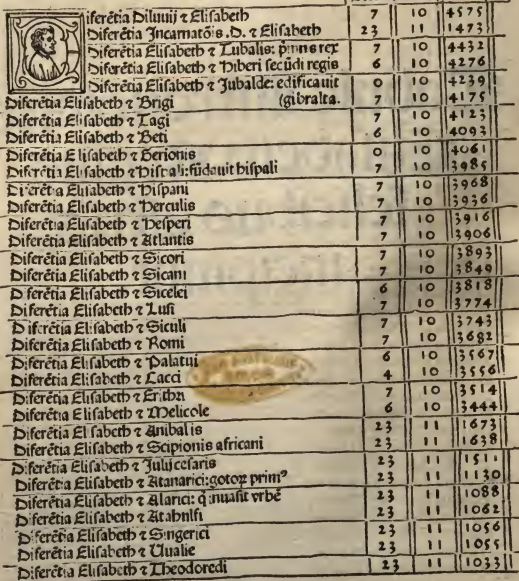 Diferētia Diluuij ⁊ Elisabeth 7 10 4575
Diferētia Incarnatōis .D. ⁊ Elisabeth 23 11 1473
Diferētia Elisabeth ⁊ Tubalis: pīnns rex 7 10 4432
Diferētia Elisabeth ⁊ Hiberi secūdi regis 6 10 4276
Diferētia Elisabeth ⁊ Jubalde: edificauit 0 10 4239
Diferētia Elisabeth ⁊ Brigi (gibralta. 7 10 4175
Diferētia Elisabeth ⁊ Tagi 7 10 4123
Diferētia Elisabeth ⁊ Beti 6 10 4093
Diferētia Elisabeth ⁊ Gerionis 0 10 4061
Diferētia Elisabeth ⁊ Hispali: fūdauit hispali 7 10 3985
Diferētia Elisabeth ⁊ Hispani 7 10 3968
Diferētia Elisabeth ⁊ Herculis 7 10 3936
Diferētia Elisabeth ⁊ Hesperi 7 10 3916
Diferētia Elisabeth ⁊ Atlantis 7 10 3906
Diferētia Elisabeth ⁊ Sicori 7 10 3893
Diferētia Elisabeth ⁊ Sicani 7 10 3849
Diferētia Elisabeth ⁊ Sicelei 6 10 3818
Diferētia Elisabeth ⁊ Lusi 7 10 3774
Diferētia Elisabeth ⁊ Siculi 7 10 3743
Diferētia Elisabeth ⁊ Romi 7 10 3682
Diferētia Elisabeth ⁊ Palatui 6 10 3567
Diferētia Elisabeth ⁊ Cacci 4 10 3556
Diferētia Elisabeth ⁊ Erithri 7 10 3514
Diferētia Elisabeth ⁊ Melicole 6 10 3444
Diferētia Elisabeth ⁊ Anibalis 23 11 1673
Diferētia Elisabeth ⁊ Scipionis africani 23 11 1638
Diferētia Elisabeth ⁊ Julij cesaris 23 11 1511
Diferētia Elisabeth ⁊ Atanarici: gotoꝝ primꝰ 23 11 1130
Diferētia Elisabeth ⁊ Alarici: q̄ inuasit vrbē 23 11 1088
Diferētia Elisabeth ⁊ Atahulfi 23 11 1062
Diferētia Elisabeth ⁊ Singerici 23 11 1056
Diferētia Elisabeth ⁊ Uualie 23 11 1055
Diferētia Elisabeth ⁊ Theodoredi 23 11 1033